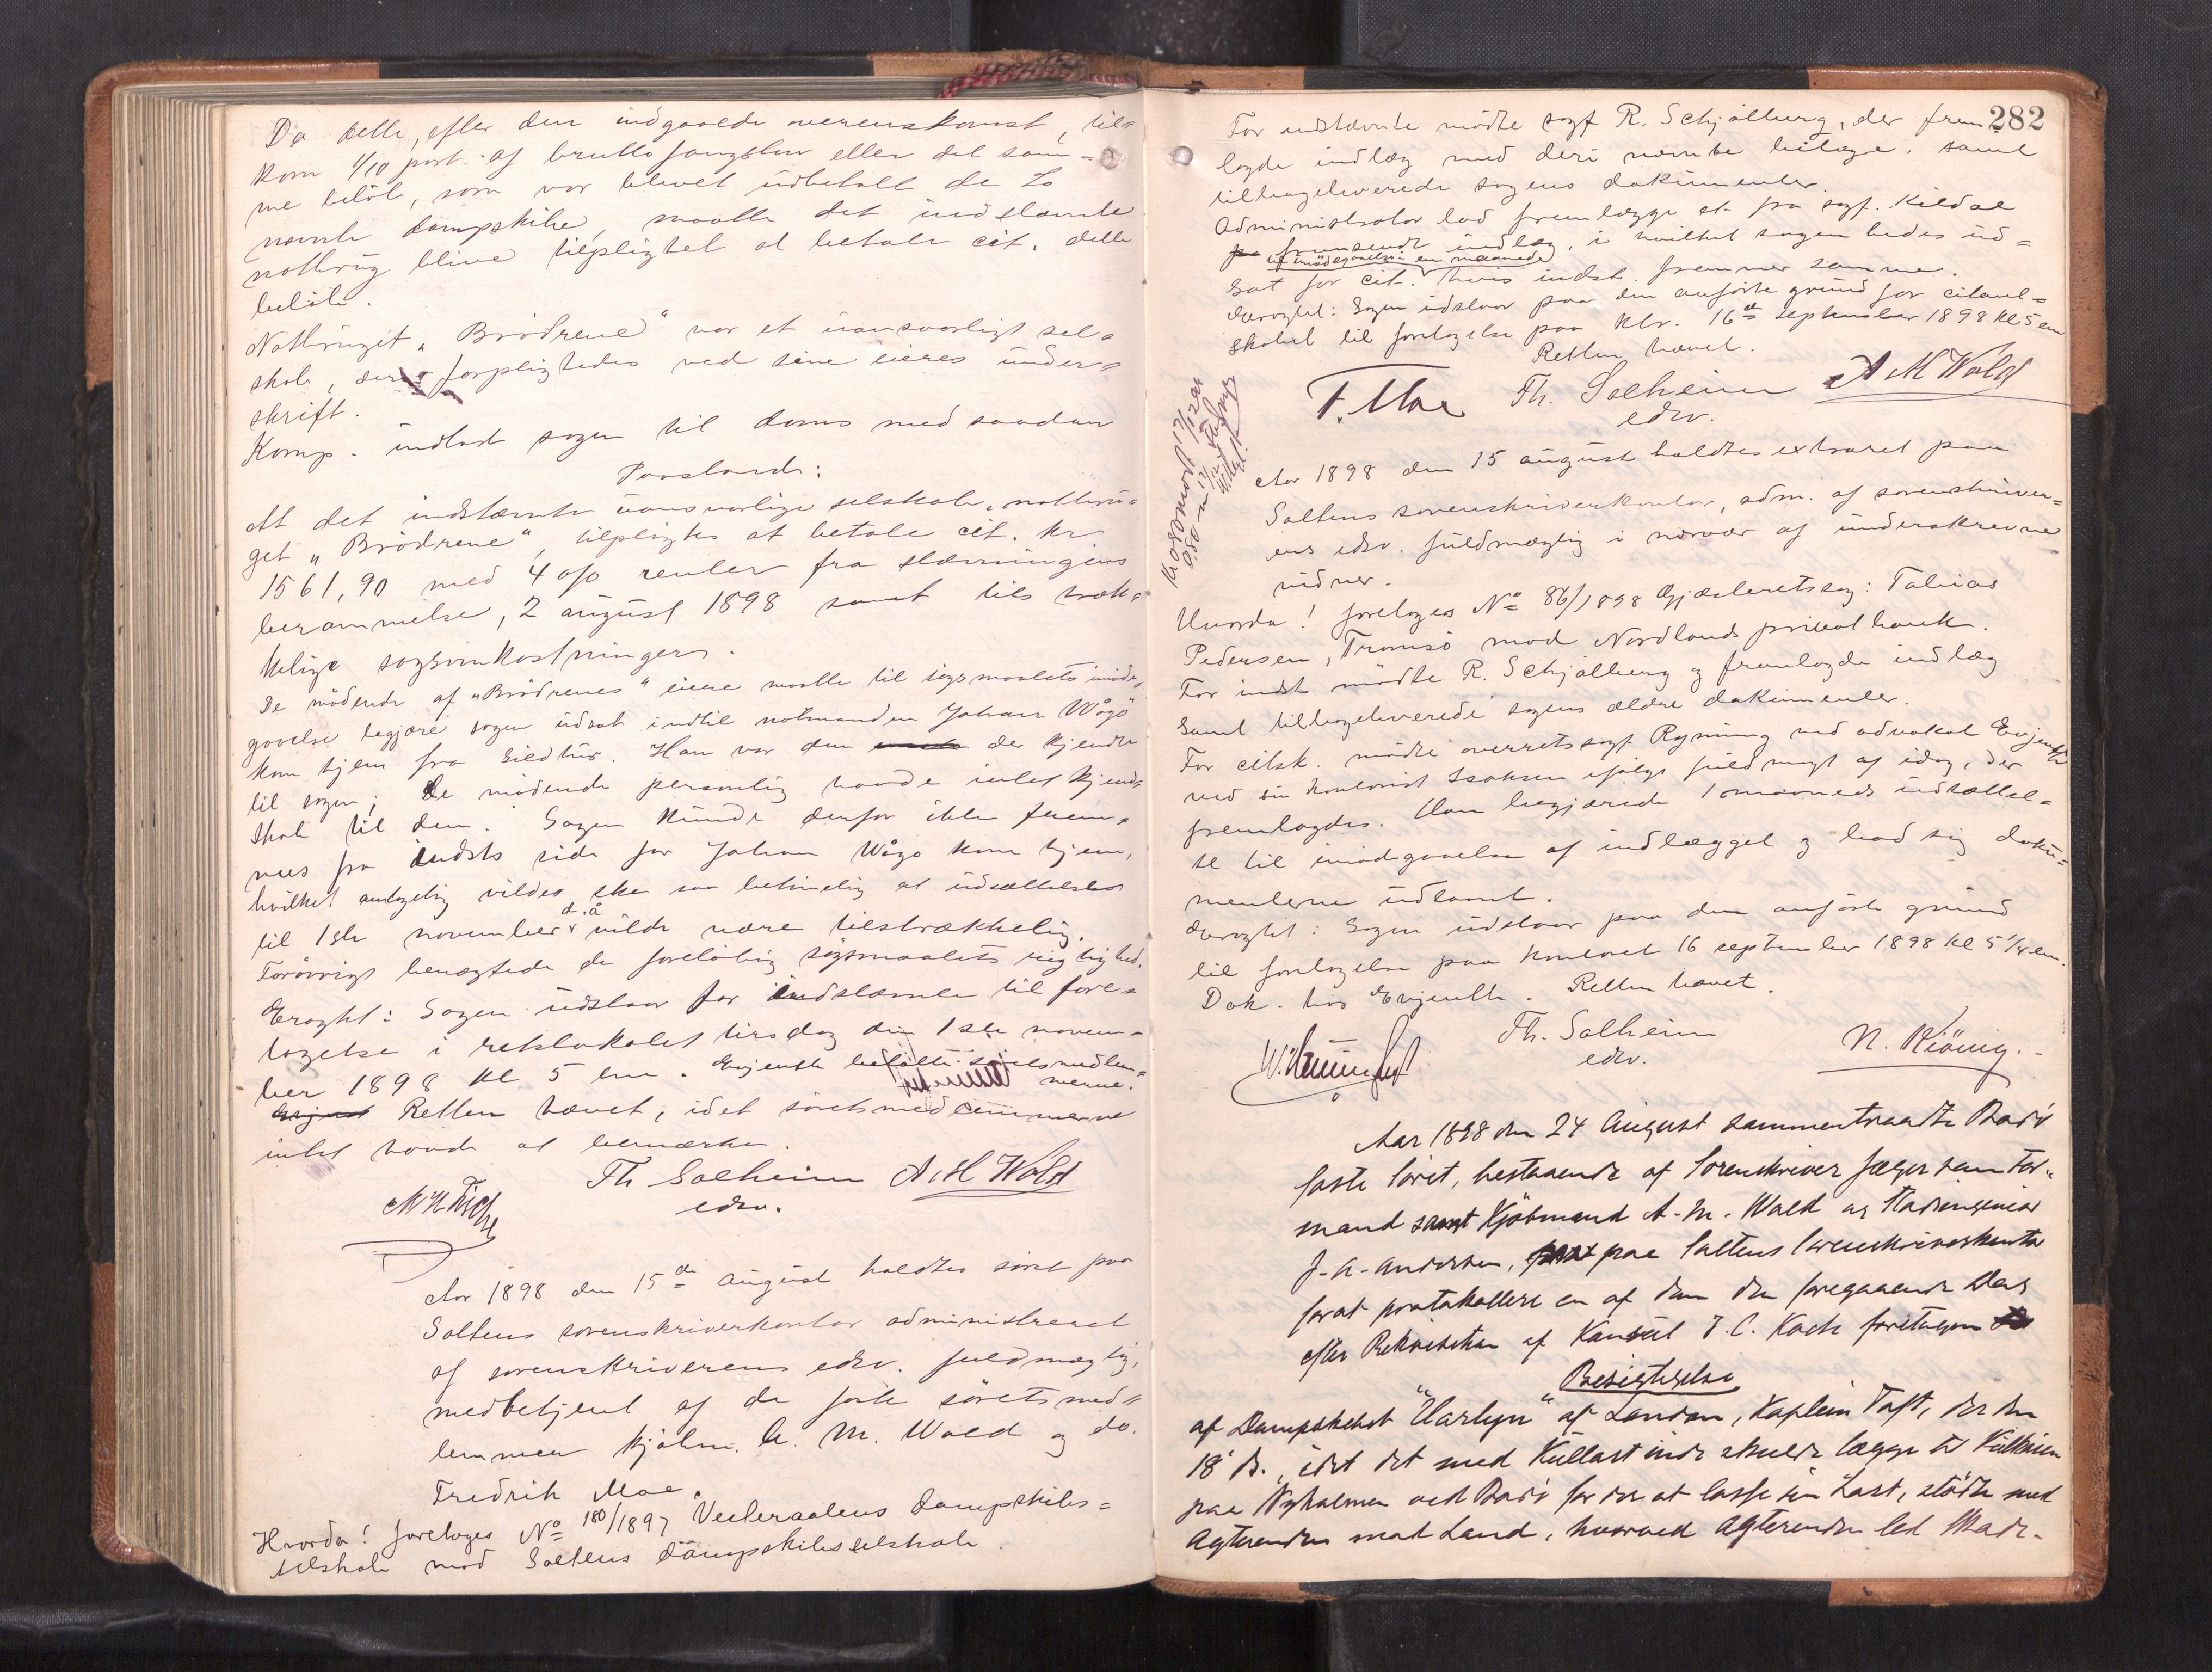 Da dette, efter den indgaaede overenskomst, til-
kom 1/10 part af brutto fangsten eller det sam-
me beløb, som var blevet udbetalt de to
nævnte dampskibe, maatte det indstævnte
notbrug blive tilpligtet at betale cit. dette
beløb.
Notbruget "Brødrene" var et uansvarligt sel-
skab, der forpligtedes ved sine eieres under-
skrift.
Komp. indlod sagen til doms med saadan
Paastand:
At det indstævnte uansvarlige selskab, notbru-
get "Brødrene", tilpligtes at betale cit. kr
1561,90 med 4 o/o renter fra stævningens
berammelse, 2 august 1898 samt tilstræk-
kelige sagsomkostninger.
De mødende af "Brødrenes" eiere maatte til søgsmaalets imøde-
gaaelse begjære sagen udsat indtil notmanden Johan Vågø
kom hjem fra sildtur. Han var den der kjendte
til sagen; de mødende personlig havde intet kjend-
skab til den. Sagen kunde derfor ikke frem-
mes fra indsts side før Johan Vågø kom hjem,
hvilket antagelig vildes ske saa betimelig at udsættelse
til 1ste november d. å vilde være tilstrækkelig.
Forøvrigt benægtede de foreløbig søgsmaalets rigtighed.
Eragtet: Sagen udstaar for indstævnte til fore-
tagelse i retslokalet tirsdag den 1ste novem-
ber 1898 kl 5 em. Evjenth befalte søretsmedlem-
merne.
Retten hævet, idet søretsmedlemmerne
intet havde at bemærke.
Th Solheim A M Wold
edsv.
Aar 1898 den 15de august holdtes søret paa
Saltens sorenskriverkontor administreret
af sorenskriverens edsv. fuldmægtig,
medbetjent af de faste søretsmed-
lemmer kjøbm. A. M. Wold og do.
Fredrik Moe.
Hvorda! foretoges No 180/1897 Vesteraalens dampskibs-
selskab mod Saltens dampskibsselskab.
282
For indstævnte mødte sagf R. Schjølberg, der frem-
lagde indlæg med deri nævnte bilage, samt
tilbageleverede sagens dokumenter.
Administrator lod fremlægge et fra sagf. Kildal
fremsendt indlæg, i hvilket sagen bedes ud-
til imødegaaelse en maaned
sat for cit. hvis indst. fremmer samme.
Eragtet: Sagen udstaar paa den anførte grund for citant-
skabet til foretagelse paa ktr. 16de september 1898 kl 5 em
Retten hævet.
F. Moe Th. Solheim A M Wold
edsv.
Aar 1898 den 15 august holdtes extraret paa
Saltens sorenskriverkontor, adm. af sorenskriver-
ens edsv. fuldmægtig i nærvær af underskrevne
vidner.
Hvorda! foretoges No 86/1898 Gjæsteretssag: Tobias
Pedersen, Tromsø mod Nordlands privatbank.
For indst mødte R. Schjølberg og fremlagde indlæg
samt tilbageleverede sagens ældre dokumenter.
For citsk. mødte overretssagf Rynning ved advokat Evjenth
ved sin kontorist Isaksen ifølge fuldmagt af idag, der
fremlagdes. Han begjærede 1 maaneds udsættel-
se til imødegaaelse af indlægget og bad sig doku-
menterne udlaant.
Eragtet: Sagen udstaar paa den anførte grund
til foretagelse paa kontoret 16 september 1898 kl 5 1/4 em.
Dok. hos Evjenth. Retten hævet.
Th. Solheim N. Kiönig.
edsv.
Aar 1898 den 24 August sammentraadte Bodø
faste søret, bestaaende af Sorenskriver Jæger som For-
mand samt Kjøbmand A. M. Wold og Havneingeniør
J. A. Andersen, paa Saltens Sorenskriverkontor
forat protokollere en af dem den foregaaende Dag
efter Rekvisition af Konsul J. C. Koch foretagen
Besigtigelse
af Dampskibet "Harlyn" af London, Kaptein Taft, der den
18 ds., idet det med Kullast inde skulde lægge til Kulkaien
paa Nyholmen ved Bodø for der at losse sin Last, stødte med
Agterenden mod Land, hvorved Agterenden led Skade.